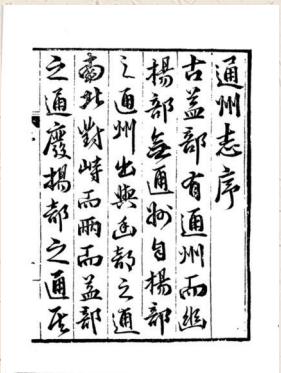 通州志序
古益部有通州而幽
揚部無通州自揚部
之通州出與幽部之通
南北對峙而兩而益部
之通廢揚部之通至